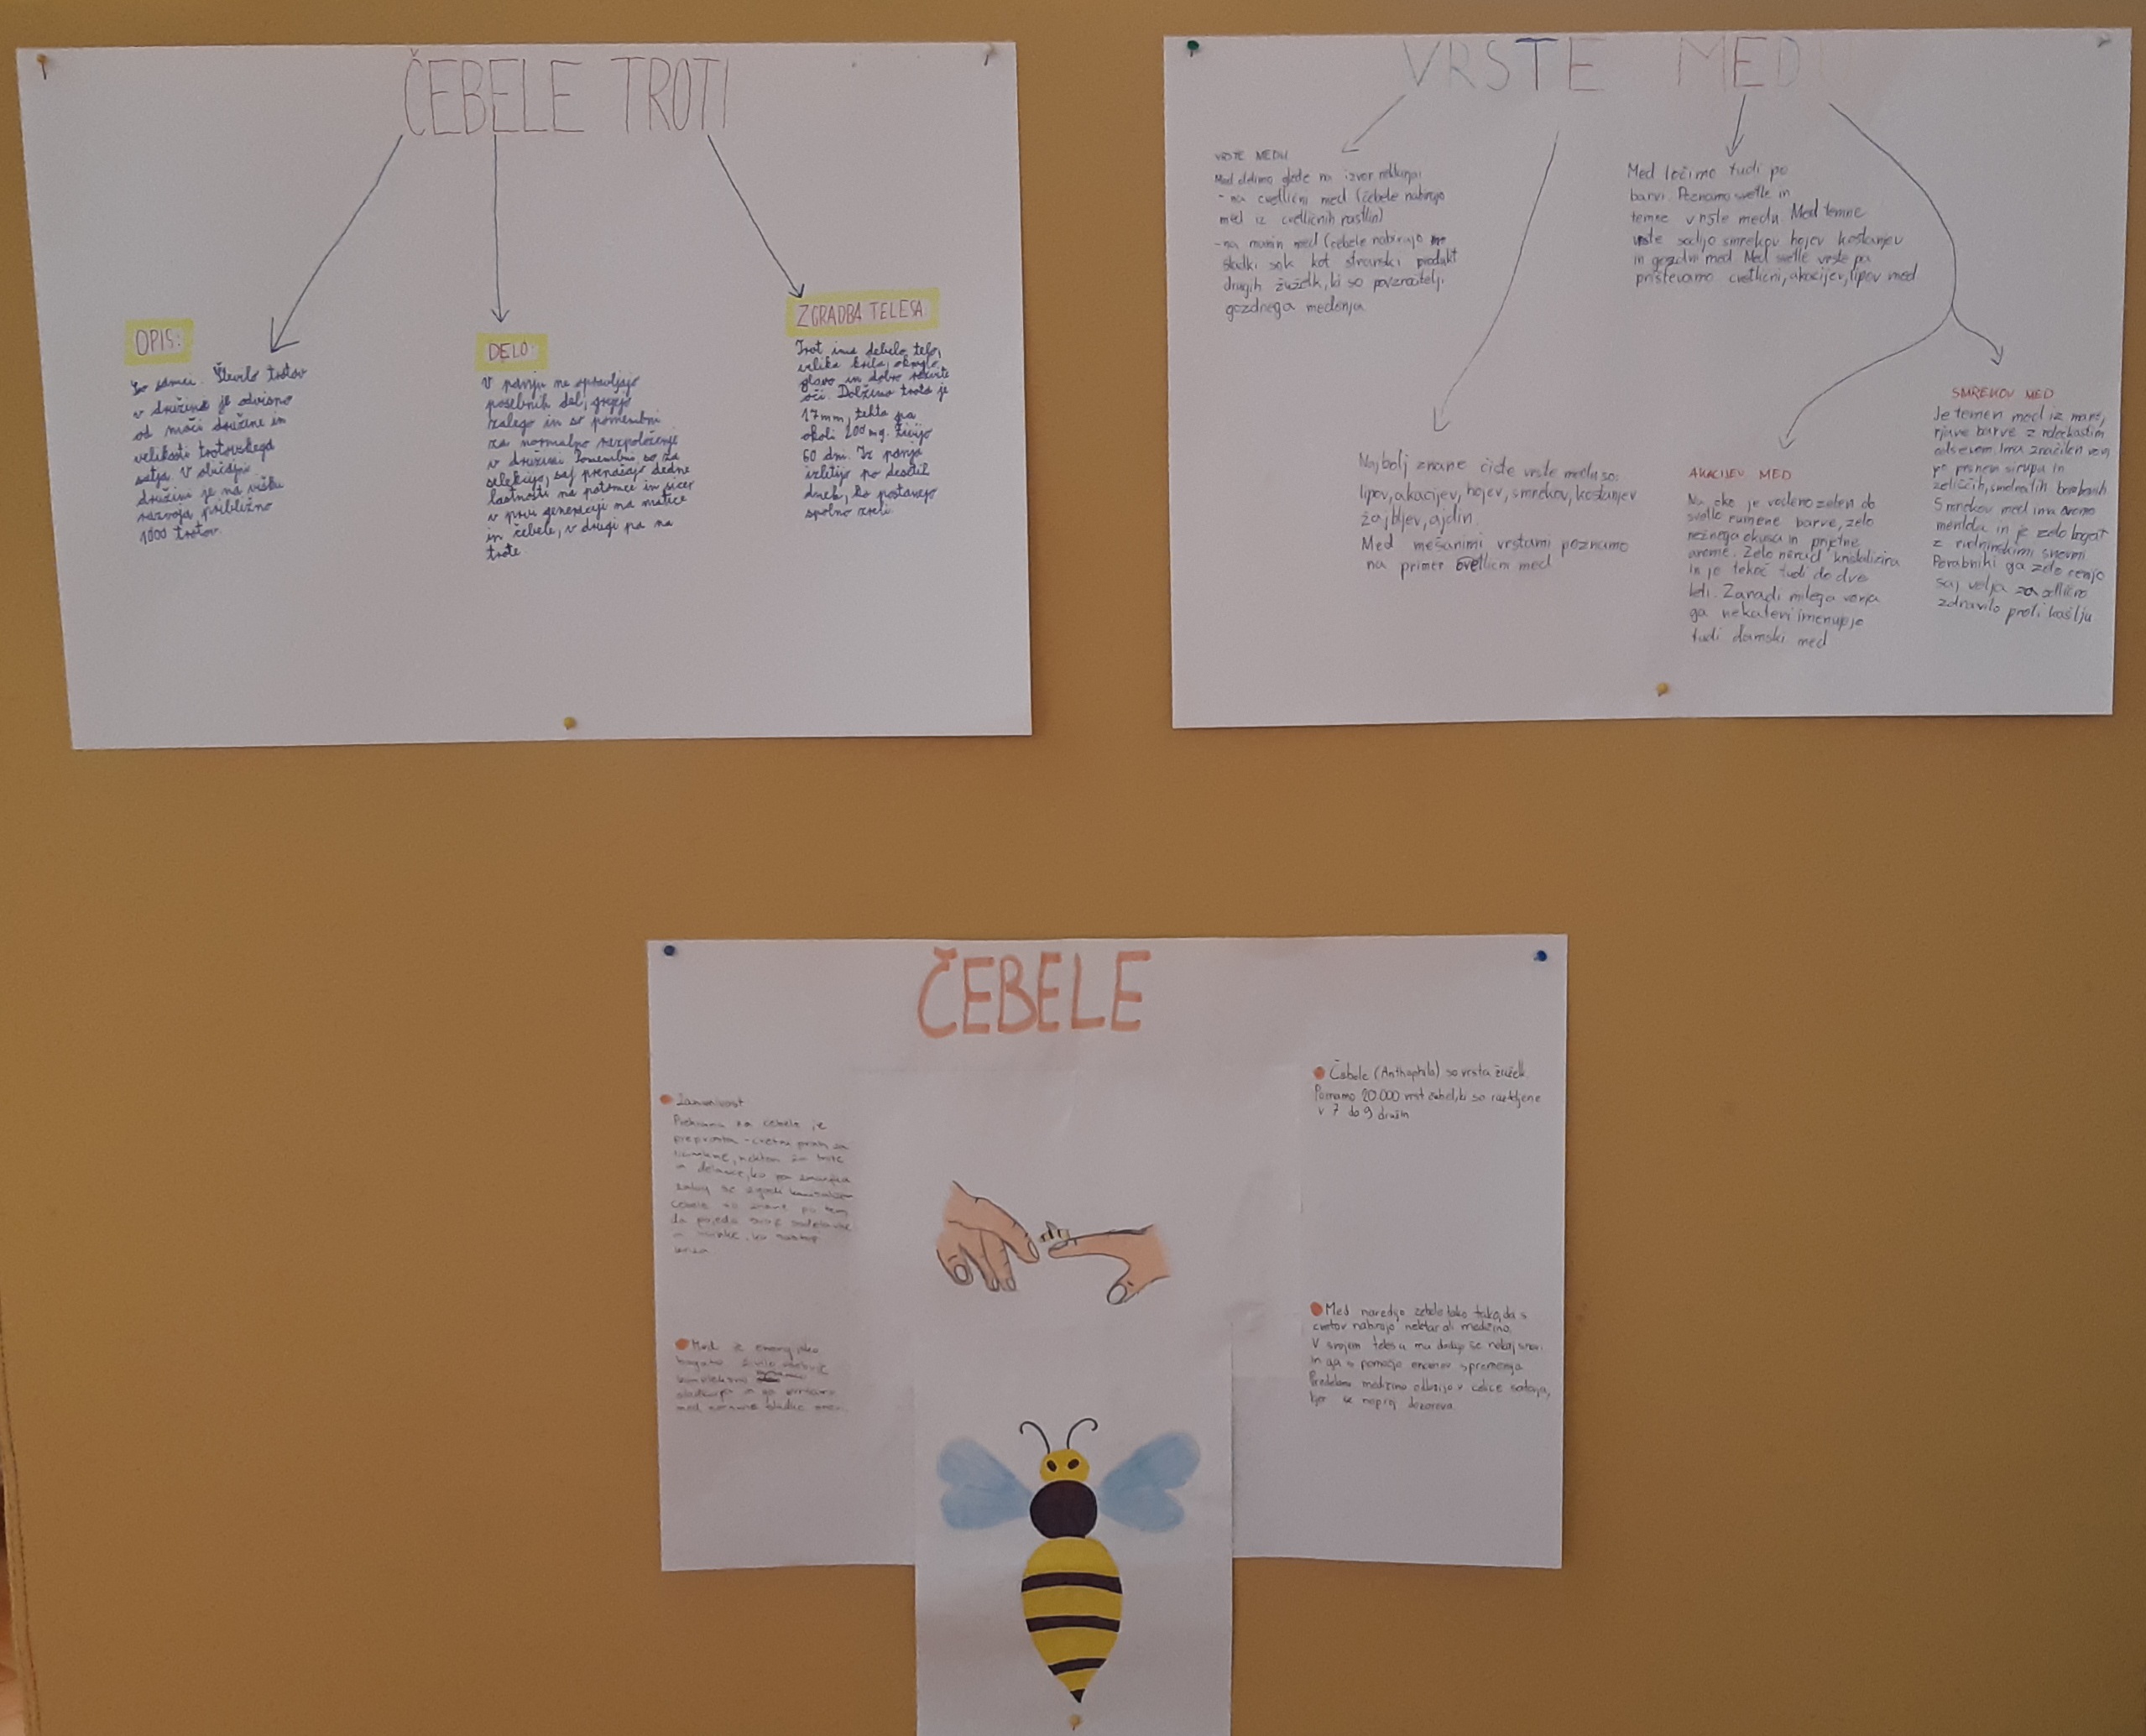 ČEBELE TROTI
OPIS:
So samci. Število trotov
v družini je odvisno
od moči družine in
velikosti trotovskega
satja. V slučaju
družini je na višku
razvoja približno
1000 trotov.
DELO:
V panju ne opravljajo
posebnih del, grejejo
zalego in so pomembni
za normalno razpoloženje
v družini. Pomembni so za
selekcijo, saj prenašajo dedne
lastnosti na potomce in sicer
v prvi generaciji na matice
in čebele, v drugi pa na
trote.
ZGRADBA TELESA:
Trot ima debelo telo,
velika krila, okroglo
glavo in dobro razvite
oči. Dolžina trota je
17mm, tehta pa
okoli 200 mg. Živijo
60 dni. Iz panja
izletijo po desetih
dneh, ko postanejo
spolno zreli.
VRSTE MEDU
VRSTE MEDU
Med delimo glede na izvor nektarja:
- na cvetlični med (čebele nabirajo
med iz cvetličnih rastlin)
- na manin med (čebele nabirajo
sladki sok kot stranski produkt
drugih žuželk, ki so povzročitelji
gozdnega medenja
Med ločimo tudi po
barvi. Poznamo svetle in
temne vrste medu Med temne
vrste sodijo smrekov hojev kostanjev
in gozdni med. Med svetle vrste pa
prištevamo cvetlični, akacijev, lipov med
Najbolj znane čiste vrste medu so:
lipov, akacijev, hojev, smrekov, kostanjev
žajbljev, ajdin.
Med mešanimi vrstami poznamo
na primer cvetlični med
AKACIJEV MED
Na oko je vodeno zelen do
svetlo rumene barve, zelo
nežnega okusa in prijetne
arome. Zelo nerad kristalizira
in je tekoč tudi do dve
leti. Zaradi milega vonja
ga nekateri imenujejo
tudi damski med
SMREKOV MED
Je temen med iz mane,
rjave barve z rdečkastim
odsevom. Ima značilen vonj
po sirupu in
zeliščih, smolnatih bonbonih
Smrekov med ima aromo
mentola in je zelo bogat
z rudninskimi snovmi
Porabniki ga zelo cenijo
saj velja za odlično
zdravilo proti kašlju
ČEBELE
Zanimivost
Prehrana za čebele je
preprosta - cvetni prah za
nektar za
delavke, ko pa zmanjka
zalog se zgodi
čebele so znane po tem
da
ko nastopi
kriza.
Čebele (Anthophila) so vrsta žuželk.
Poznamo 20 000 vrst čebel, ki so razdeljene
v 7 do 9 družin
Med je energijsko
bogato živilo
sladkorja
med sladke
Med naredijo čebele tako, da s
cvetov nabirajo nektar ali medičino.
V svojem telesu mu dodajo še nekaj snovi
in ga s pomočjo encimov spremenijo
Predelano medičino odložijo v celice satovja,
kjer se naprej dozoreva.